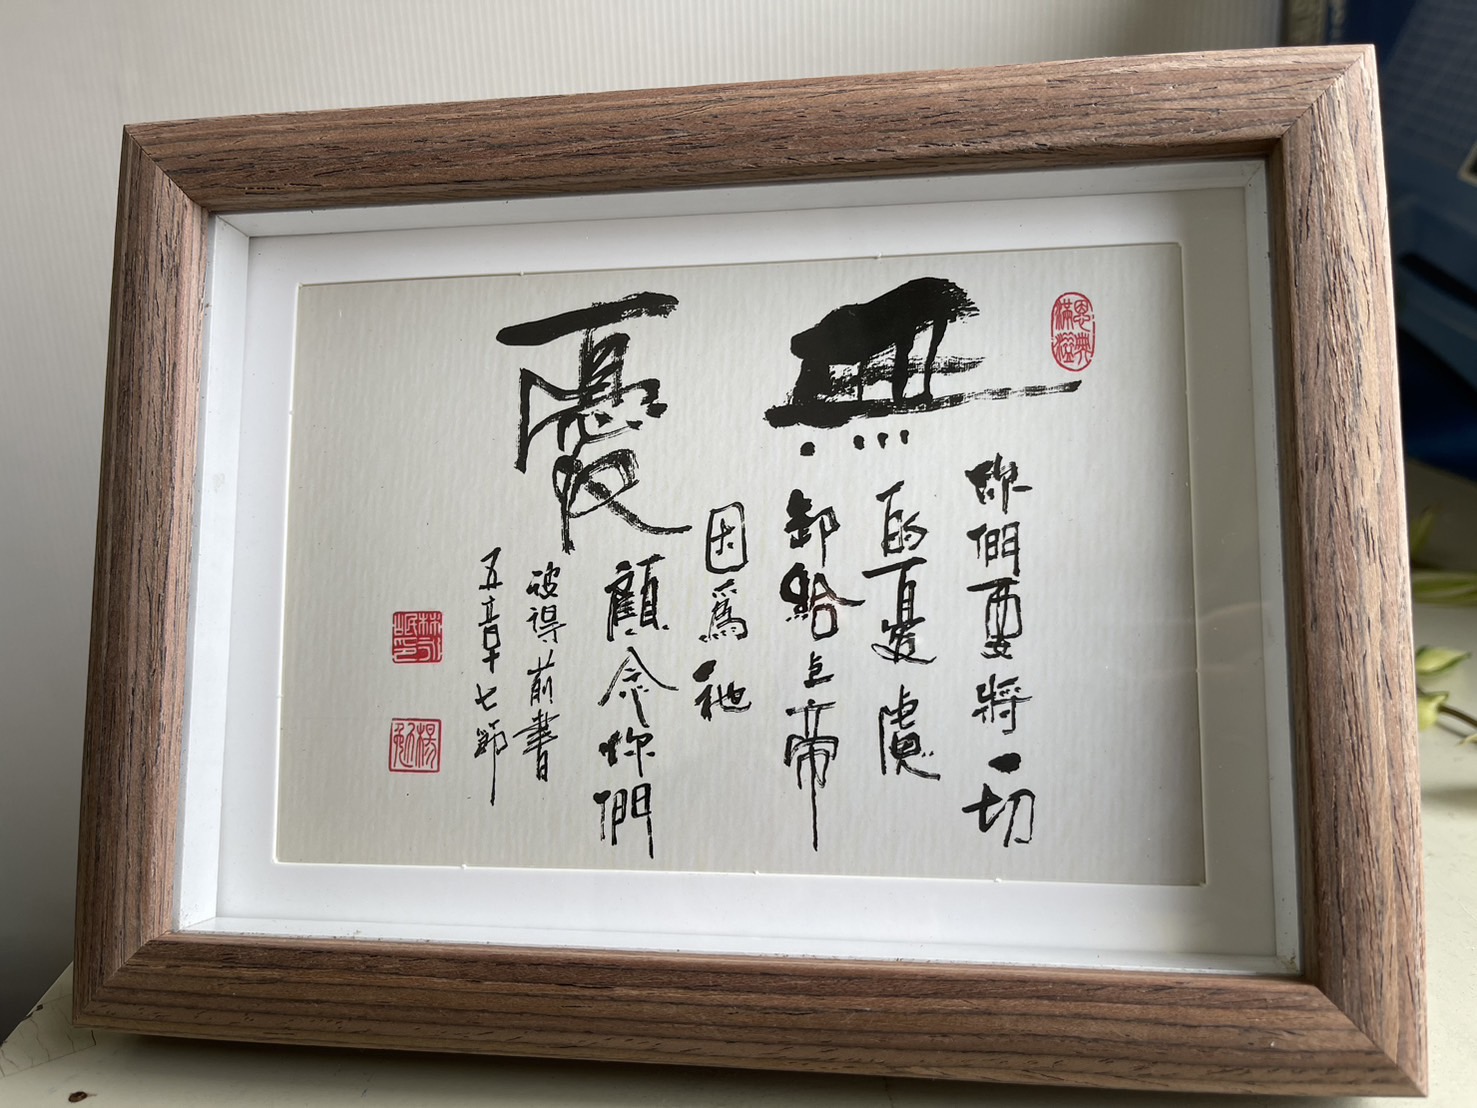 恩典滿溢
無憂
你們要將一切
的憂慮
卸給上帝
因為祂
顧念你們
彼得前書
五章七節